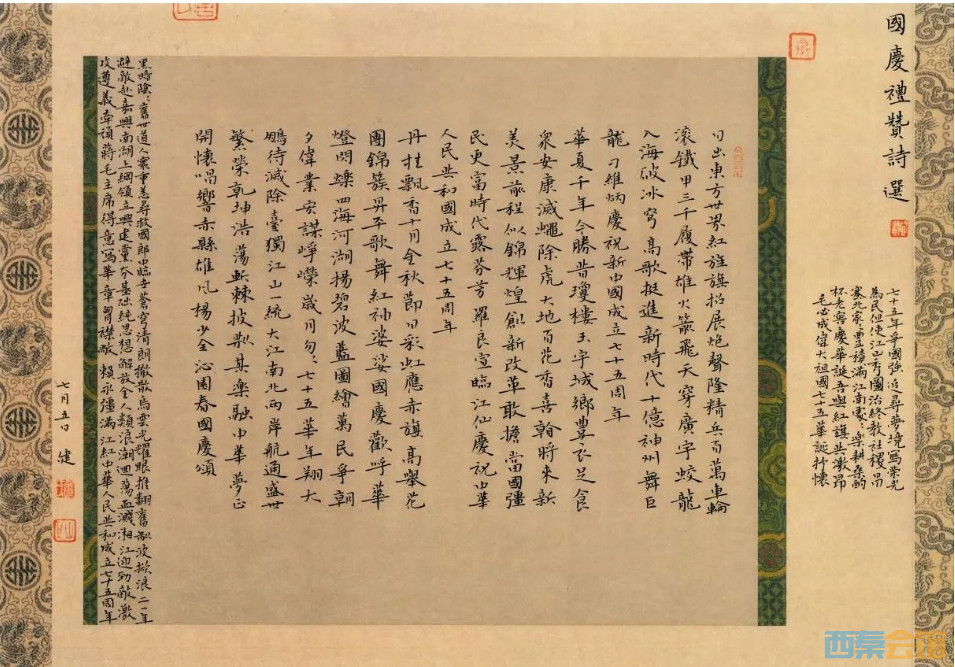 國慶禮贊詩選
七十五年華國強追尋夢境寫榮光
為民但使江山秀國治終教社稷昌
塞北家家豐積滿江南處處樂耕桑酌
杯老寧慶華誕吾與紅旗共激昂
毛必成偉大祖國七十五華誕抒懷
日出東方世界紅旌旗招展炮聲隆精兵百萬車輪
滾鐵甲三千履帶雄火箭飛天穿廣宇蛟龍
入海破冰穹高歌挺進新時代十億神州舞巨
龍刁維炳慶祝新中國成立七十五周年
華夏千年今勝昔瓊樓玉宇城鄉豐衣足食
眾安康滅蠅除虎大地百花香喜翰將來新
美景前程似錦輝煌創新改革敢擔當國強
民更富時代露芬芳羅良宣臨江仙慶祝中華
人民共和國成立七十五周年
丹桂飄香十月金秋節日彩虹應赤旗高舉花
團錦簇昇平歌舞紅袖婆娑國慶歡呼華
燈閃爍四海河湖揚碧波藍圖繪萬民爭朝
夕偉業宏謀崢嶸歲月勾七十五華年翔大
鵬待滅除臺獨江山一統大江南北兩岸航通盛世
繁榮乾坤浩蕩斬棘披荊其樂融中華夢正
開懷唱響赤縣雄風楊少全沁園春國慶頌
里時陰舊世道人家重善尋救國郎中臨安蒼穹清朗撤散烏雲光耀眼推翻舊制波掀浪二一年
避敵赴嘉興南湖上綱領立興建黨夯基础純思想解放全人類浪潮迴蕩血濺湘江迎勁敵激
攻遵義牽頭蔣毛主席得意寫華章胸襟敞賴永強滿江紅中華人民共和成立七十五周年
七月五日 健
西秦会